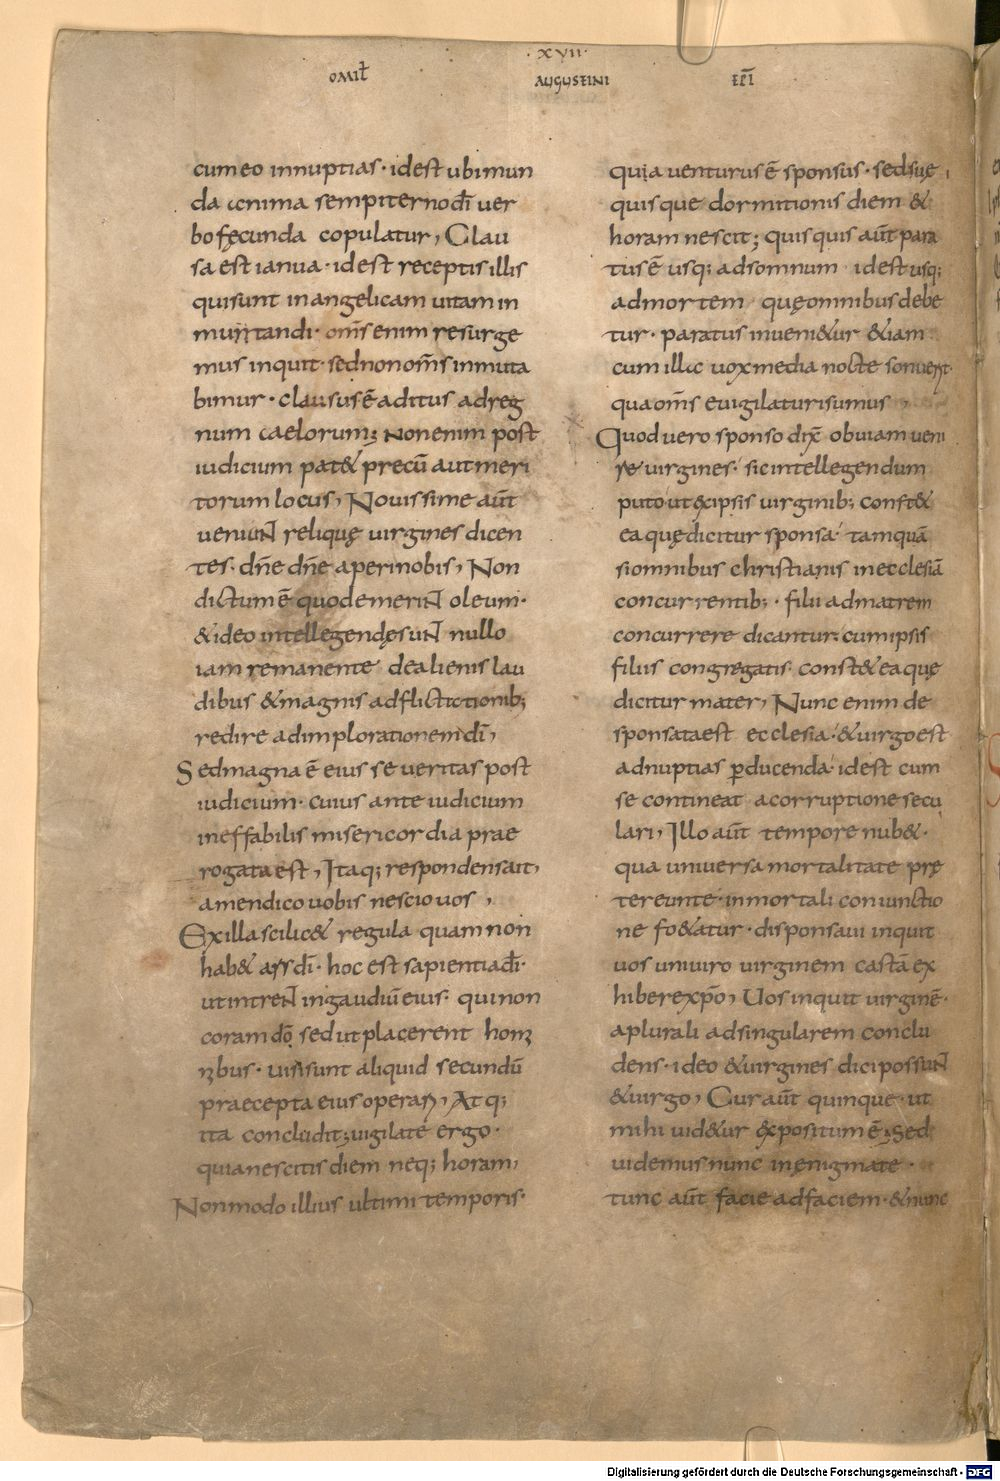 ·xvii·
omił augustini ep̄i
cum eo innuptias· idest ubimun
da anima sempiterno dī ver
bo fęcunda copulatur, Clau
sa est ianua· idest receptis illis
qui sunt in angelicam vitam in
muttandi· om̄s enim resurge
mus inquit· sed non om̄s inmuta
bimur· clausus ē aditus ad reg
num caelorum; Non enim post
iudicium pat& precū aut meri
torum locus, Novissime aūt
veniunt relique virgines dicen
tes· dn̄e dn̄e aperi nobis, Non
dictum ē quod emerint oleum·
& ideo intellegendę sunt nullo
iam remanente de alienis lau
dibus & magnis adflictationib;
redire ad implorationem dī,
Sed magna ē eius severitas post
iudicium· cuius ante iudicium
ineffabilis misericordia prae
rogata est, Itaq; respondens ait,
amen dico vobis nescio vos,
Ex illa scilic& regula quam non
hab& ars dī· hoc est sapientia dī·
ut intrent in gaudiū eius· qui non
coram dō sed ut placerent homi
nibus· visi sunt aliquid secundū
praecepta eius operari, Atq;
ita concludit; vigilate ergo·
quia nescitis diem neq; horam,
Non modo illius ultimi temporis·
quia venturus ē sponsus· sed suę
quisque dormitionis diem &
horam nescit; quisquis aūt para
tus ē usq; ad somnum idest usq;
ad mortem quę omnibus debe
tur· paratus inveni&ur &iam
cum illac vox media nocte sonuerit·
qua om̄s evigilaturi sumus,
Quod vero sponso dix̄ obviam veni
re virgines· sic intellegendum
puto ut ex ipsis virginib; const&
ea quę dicitur sponsa· tamquā
si omnibus christianis in ecclesiā
concurrentib;· filii ad matrem
concurrere dicantur· cum ipsis
filiis congregatis const& ea quę
dicitur mater, Nunc enim de
sponsata est ecclesia· & virgo est
ad nuptias ꝑducenda· idest cum
se contineat a corruptione secu
lari, Illo aūt tempore nub&·
qua universa mortalitate prę
tereunte· inmortali coniunctio
ne fo&atur· disponsavi inquit
vos uni viro virginem castā ex
hiberexp̄o, Vos inquit virginē·
a plurali ad singularem conclu
dens· ideo & virgines dici possunt
& virgo, Cur aūt quinque· ut
mihi vid&ur expositum ē; Sed
videmus nunc in ęnigmate·
tunc aūt facie ad faciem· & nunc
Digitalisierung gefördert durch die Deutsche Forschungsgemeinschaft - DFG